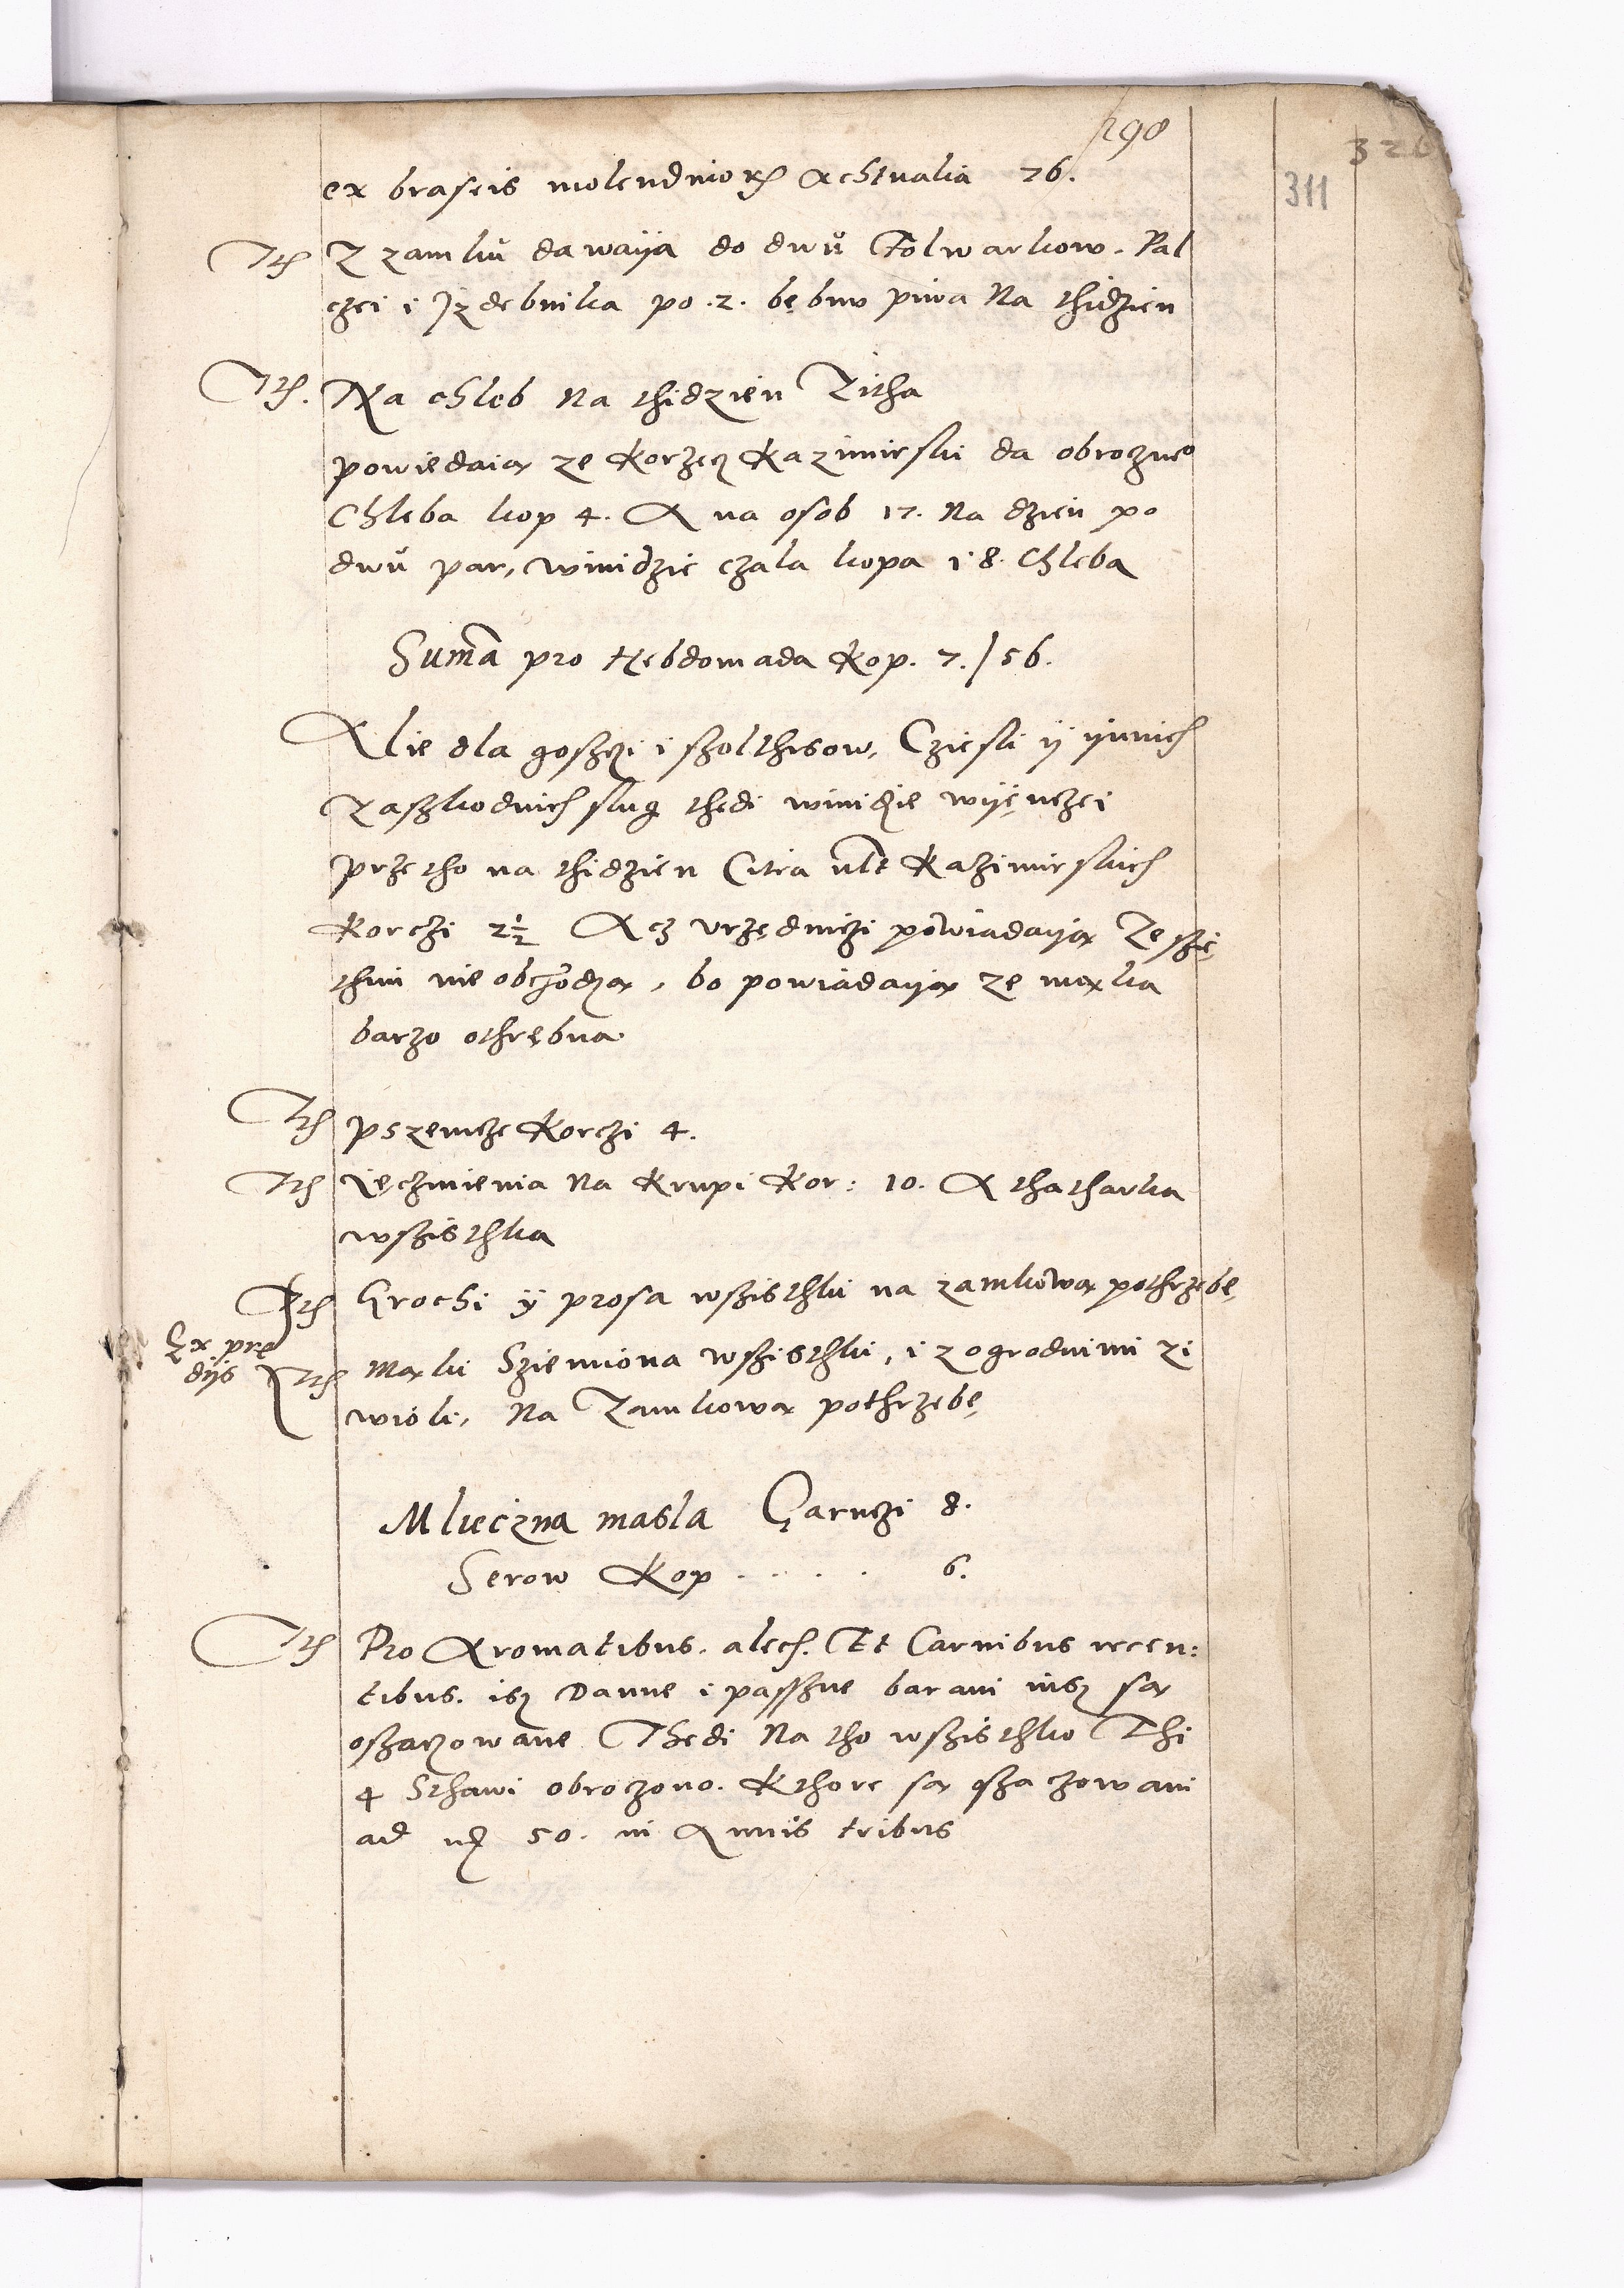 298
326
311
ex braseis molendinor Aestualia 26.
Itm Z zamku dawaya do dwu Folwarkow. Pal
czei i Jzdebnika po .2. bębnv piwa Na thidzien
Itm. Na chleb Na thidzien Zitha
powiedaia ze Korzecz Kazimirski da obroczneo
Chleba kop 4. A na osob 17. Na dzien po
dwu par, winidzie czala kopa i 8. Chleba
Suma pro Hebdomada Kop. 7./56.
Alie dla goszczi i szolthisow, Cziesli ÿ ÿnnich
Zaszkodnich slug thedi winidzie wiięnczei
prze tho na thidzien Citra vlt Kazimirskich
Korczi 2½ Acz vrzędniczi powiadaya Ze szię
thim nie obchodza, bo powiadaya ze maka
barzo othrębna
Itm Pszenicze Korczi 4.
Itm Ięczmienia Na Krupi Kor: 10. A thatharka
wszisthka
Itm Grochi ÿ prosa wszisthki na zamkowa pothrzebę
Ex prę
dijs
Itm Maki Sziemiona wszisthki, i z ogrodnimi zi
wioli, Na Zamkowa pothrzebę
Mlieczna masla Garnczi 8.
Serow Kop . . . . . 6.
Itm Pro Aromatibus. alech. Et Carnibus recen:
tibus. isz Danne i passzne barani insz sa
oszaczowane Thedi Na tho wszisthko Thi
4 Sthawi obroczono. Kthore sa oszaczowani
ad mr 50. in Annis tribus